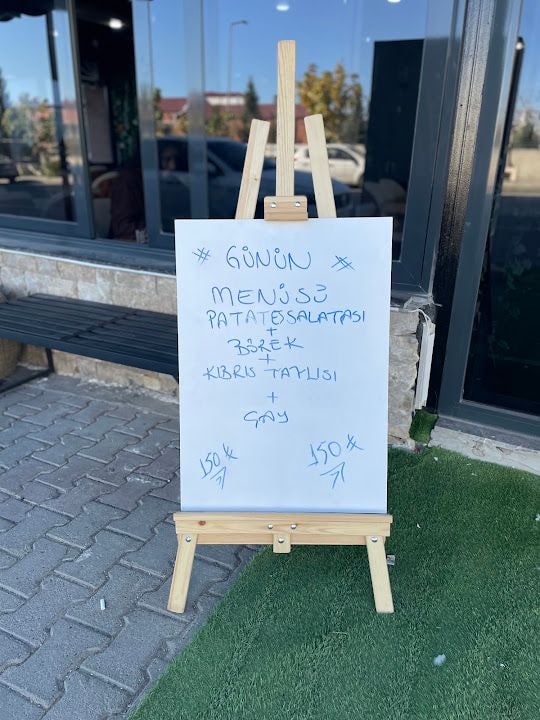 # GÜNÜN #
MENÜSÜ
PATATESSALATASI
+
BÖREK
+
KIBRIS TATLISI
+
ÇAY
150 ₺ 150 ₺